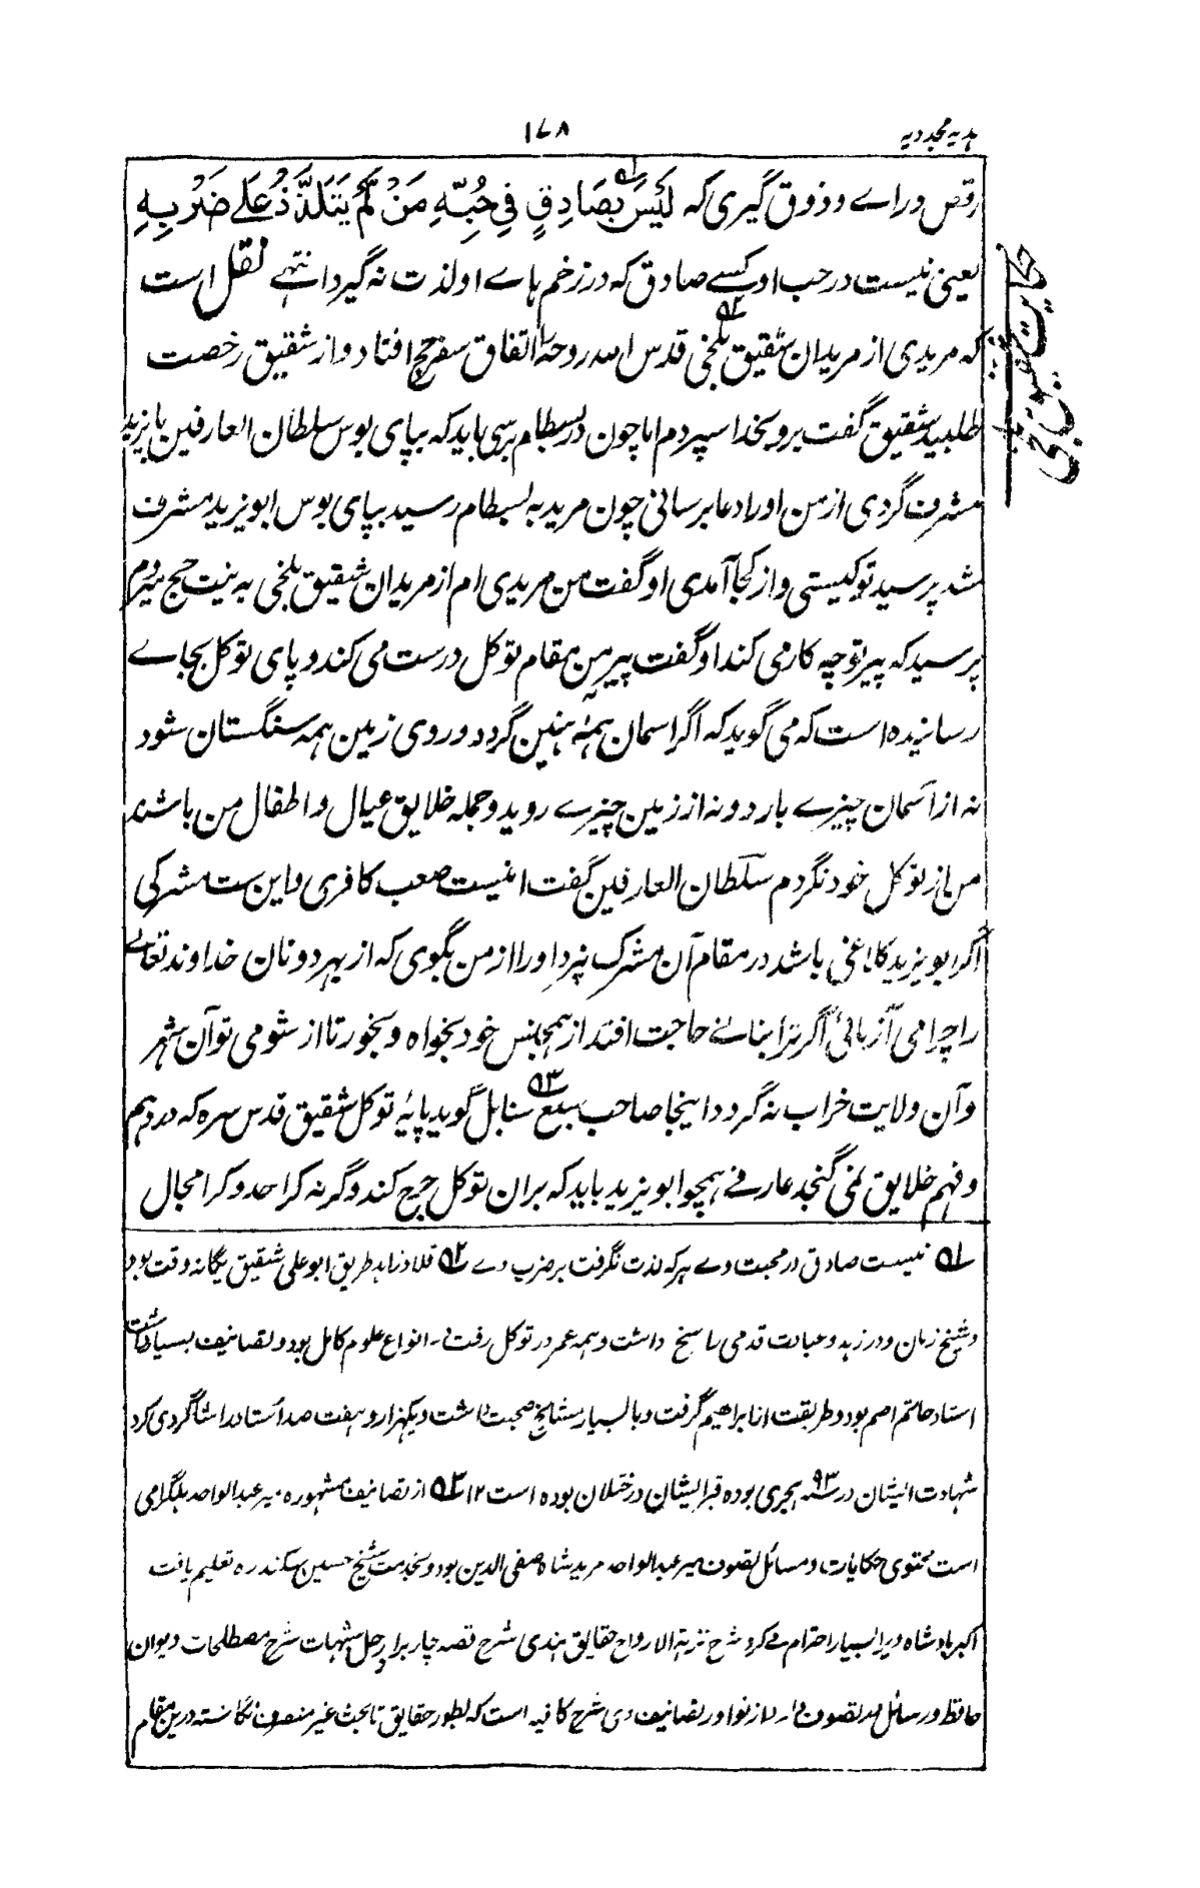 ہدیہ مجددیہ
۱۷۸
رقص در اے و ذوق گیری کہ لَیْسَ بِصَادِقٍ فِیْ حُبِّہِ مَنْ لَّمْ یَتَلَذَّذْ عَلٰے ضَرْبِہٖ
یعنی نیست در حب او کسے صادق کہ در زخم ہاے او لذت نہ گیرد انتہے نقل است
کہ مریدی از مریدان شقیق بلخی قدس اللہ روحہ اتفاق سفر حج افتاد و از شقیق رخصت
طلبید شقیق گفت برو بخدا سپردم اما چون در بسطام برسی باید کہ بپای بوس سلطان العارفین بایزید
مشرف گردی از من اورا دعا برسانی چون مرید بہ بسطام رسید بپای بوس ابویزید مشرف
شد پرسید تو کیستی و از کجا آمدی او گفت من مریدی ام از مریدان شقیق بلخی بہ نیت حج میروم
پرسید کہ پیر تو چہ کار می کند او گفت پیر من مقام توکل درست می کند و پای توکل بجاے
رسانیدہ است کہ می گوید کہ اگر اسمان ہمہ ہنین گردد و روی زمین ہمہ سنگستان شود
نہ از آسمان چیزے بارد و نہ از زمین چیزے روید و جملہ خلایق عیال و اطفال من باشند
من باز توکل خود نگردم سلطان العارفین گفت اینست صعب کافری و این ست مشرکی
اگر ابو یزید کلاغی باشد در مقام آن مشرک نپرد اورا از من بگوی کہ از بہر دو نان خداوند تعالے
را چرا می آزمائی اگر ترا بنانے حاجت افتد از ہمجنس خود بخواہ و بخور تا از شومی تو آن شہر
و آن ولایت خراب نہ گردد اینجا صاحب سبع سنابل گوید پایۂ توکل شقیق قدس سرہ کہ در وہم
و فہم خلایق نمی گنجد عارفے ہمچو ابو یزید باید کہ بران توکل جرح کند وگرنہ کرا حد و کرا مجال
حکایت شقیق بلخی
۵۱ نیست صادق در محبت وے ہرکہ لذت نگرفت بر ضرب وے ۵۲ قلاد زاہد طریق ابو علی شقیق یگانہ وقت بود
و شیخ زمان و در زہد و عبادت قدمی راسخ داشت و ہمہ عمر در توکل رفت - انواع علوم کامل بود و تصانیف بسیار داشت
استاد حاتم اصم بود و طریقت از ابراہیم گرفت و با بسیار مشایخ صحبت داشت و یکہزار و ہفت صد استاد را شاگردی کرد
شہادت ایشان در ۹۳ ہجری بودہ قبر ایشان در ختلان بودہ است ۱۲ ۵۳ از تصانیف مشہورہ میر عبدالواحد بلگرامی
است محتوی حکایات و مسائل تصوف میر عبدالواحد مرید شاہ صفی الدین بود و بخدمت شیخ حسین سکندرہ تعلیم یافت
اکبر بادشاہ ویرا بسیار احترام مے کرد شرح نزہۃ الارواح حقایق ہندی شرح قصہ چار برادر حل شبہات شرح مصطلحات دیوان
حافظ و رسائل در تصوف دارد از نوادر تصانیف وی شرح کافیہ است کہ بطور حقایق تا بحث غیر منصرف نگاشتہ درین مقام